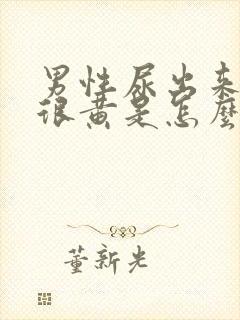 男性尿出来
很黄是怎麼
董新光